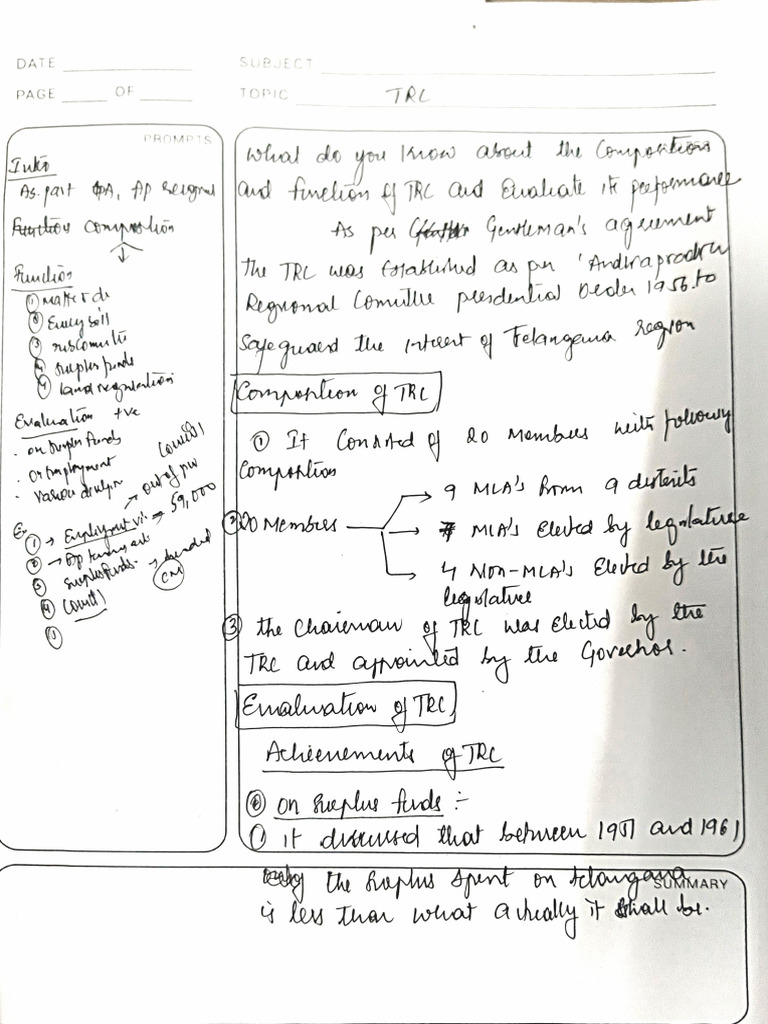 DATE
SUBJECT
PAGE OF
TOPIC TRC
PROMPTS
Intro
As part GA, AP regional
Function composition
Function
① Matter
②
③ subcomitte
④ surplus funds
④ land regulation
Evaluation +ve
· on surplus funds
· on Employment
· various
Council,
→ out of
Ex
① → Employment → 59,000
② →
③ surplus funds. →
CM
④ Council
⑤
What do you know about the Composition
and function of TRC and Evaluate its performance
As per Gentleman's agreement
the TRC was Established as per 'Andhrapradesh
Regional Comittee presidential order 1956. to
Safeguard the interest of Telangana region
Composition of TRC
① It Consisted of 20 Members with following
Composition
② 20 Membes
→ 9 MLA's from 9 districts
→ 7 MLA's Elected by legislature
→ 4 NON-MLA's Elected by the
legislature
③ the Chairman of TRC was Elected by the
TRC and appointed by the Governor.
Evaluation of TRC
Achievements of TRC
on Surplus funds :-
① it discussed that between 1957 and 1961
SUMMARY
the surplus spent on telangana
is less than what actually it shall be.